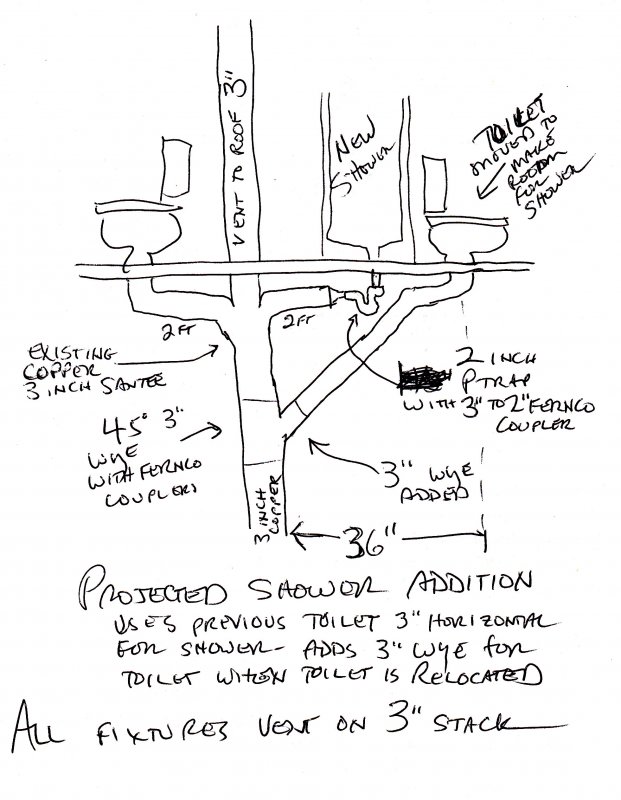 VENT TO ROOF 3"
NEW
SHOWER
TOILET
MOVED TO
MAKE
ROOM
FOR
SHOWER
2 FT
2 FT
EXISTING
COPPER
3 INCH SANTEE
2 INCH
P TRAP
WITH 3" TO 2" FERNCO
COUPLER
45° 3"
WYE
WITH FERNCO
COUPLERS
3" WYE
ADDED
3 INCH
COPPER
36"
PROJECTED SHOWER ADDITION
USES PREVIOUS TOILET 3" HORIZONTAL
FOR SHOWER - ADDS 3" WYE FOR
TOILET WHEN TOILET IS RELOCATED
ALL FIXTURES VENT ON 3" STACK